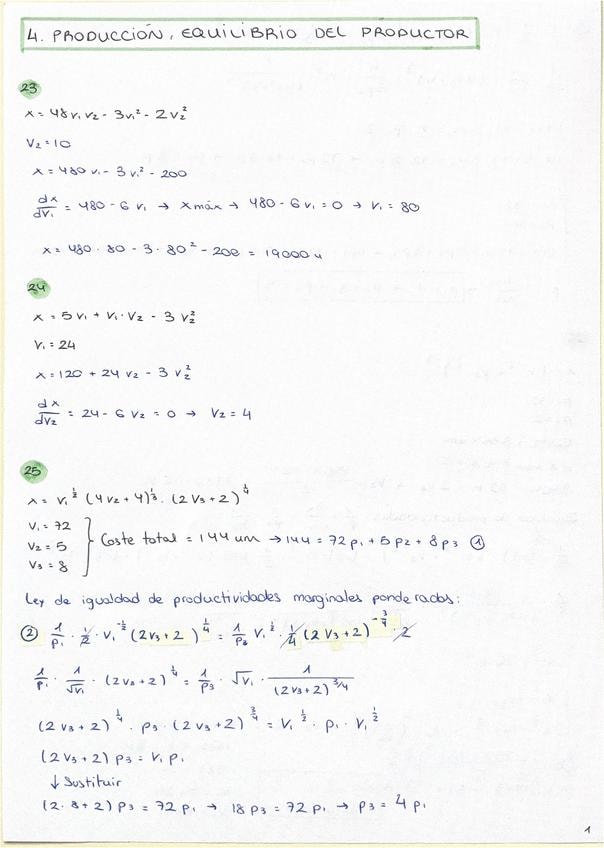 4. PRODUCCIÓN, EQUILIBRIO DEL PRODUCTOR
23
x = 48 v₁ v₂ - 3 v₁² - 2 v₂²
V₂ = 10
x = 480 v₁ - 3 v₁² - 200
dx/dv₁ = 480 - 6 v₁ → x máx → 480 - 6 v₁ = 0 → v₁ = 80
x = 480 · 80 - 3 · 80² - 200 = 19000 u
24
x = 5 v₁ + v₁ · v₂ - 3 v₂²
v₁ = 24
x = 120 + 24 v₂ - 3 v₂²
dx/dv₂ = 24 - 6 v₂ = 0 → v₂ = 4
25
x = v₁^(1/2) (4 v₂ + 4)^(1/3) · (2 v₃ + 2)^(1/4)
v₁ = 72
v₂ = 5
v₃ = 8
Coste total = 144 um → 144 = 72 p₁ + 5 p₂ + 8 p₃ ①
Ley de igualdad de productividades marginales ponderadas:
② 1/p₁ · 1/2 · v₁^(-1/2) (2v₃ + 2)^(1/4) = 1/p₃ v₁^(1/2) · 1/4 (2 v₃ + 2)^(-3/4) · 2
1/p₁ · 1/√v₁ · (2v₃ + 2)^(1/4) = 1/p₃ · √v₁ · 1/(2v₃ + 2)^(3/4)
(2 v₃ + 2)^(1/4) · p₃ · (2 v₃ + 2)^(3/4) = v₁^(1/2) · p₁ · v₁^(1/2)
(2v₃ + 2) p₃ = v₁ p₁
↓ Sustituir
(2 · 8 + 2) p₃ = 72 p₁ → 18 p₃ = 72 p₁ → p₃ = 4 p₁
1